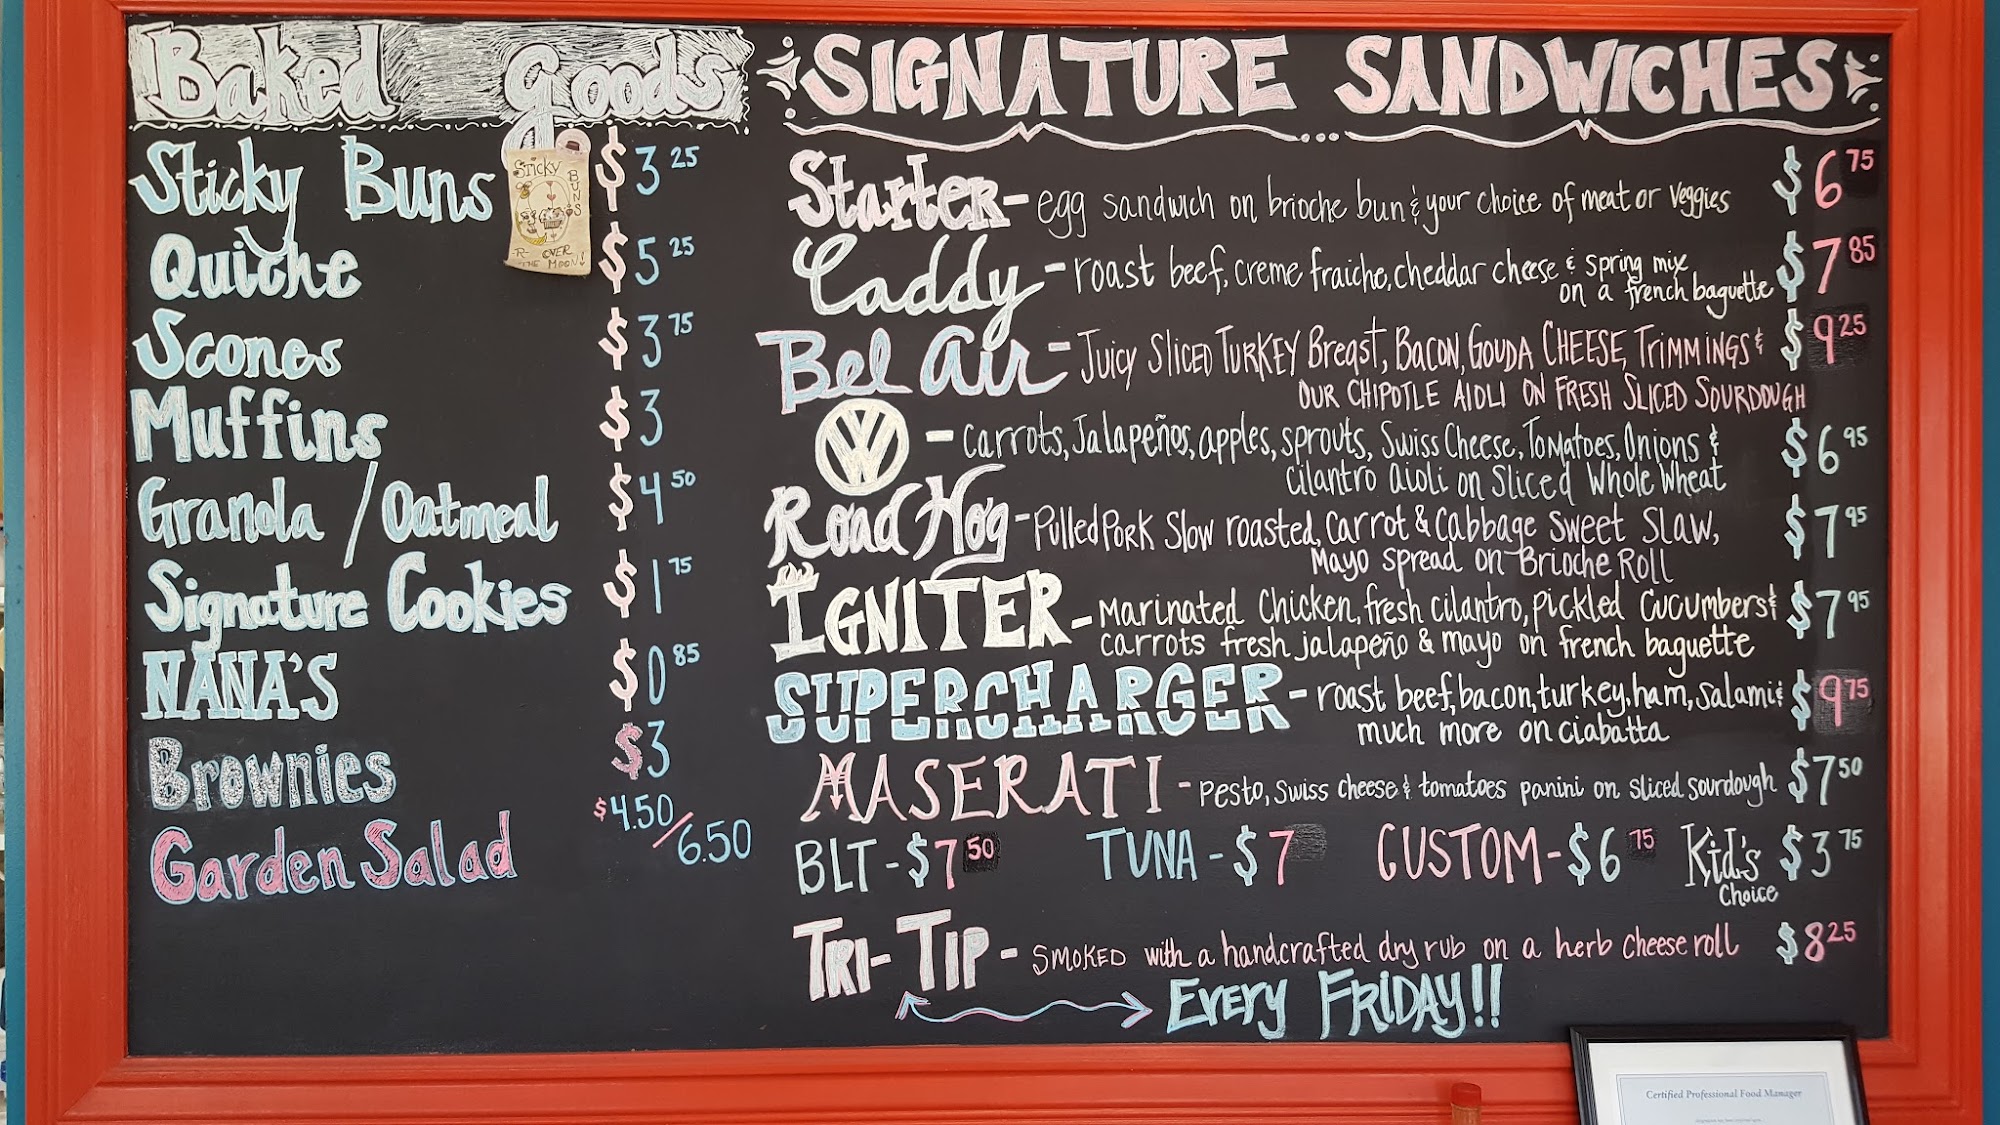 Baked goods
Sticky Buns $3 25
Sticky
BUNS
OVER
THE MOON!
Quiche $5 25
Scones $3 75
Muffins $3
Granola / Oatmeal $4 50
Signature Cookies $1 75
NANA'S $0 85
Brownies $3
Garden Salad $4.50/6.50
SIGNATURE SANDWICHES
Starter - egg sandwich on brioche bun & your choice of meat or veggies $6 75
Caddy - roast beef, creme fraiche, cheddar cheese & spring mix
on a french baguette $7 85
Bel Air - Juicy SLICED TURKEY Breast, BACON, GOUDA CHEESE, TRIMMINGS &
OUR CHIPOTLE AIOLI ON FRESH SLICED SOURDOUGH $9 25
VW - carrots, Jalapeños, apples, sprouts, Swiss Cheese, Tomatoes, Onions &
cilantro aioli on Sliced Whole Wheat $6 95
Road Hog - Pulled Pork Slow roasted, Carrot & Cabbage Sweet Slaw,
Mayo spread on Brioche Roll $7 95
IGNITER - Marinated Chicken, fresh cilantro, pickled cucumbers &
carrots fresh jalapeño & mayo on french baguette $7 95
SUPERCHARGER - roast beef, bacon, turkey, ham, salami &
much more on ciabatta $9 75
MASERATI - Pesto, Swiss cheese & tomatoes panini on sliced sourdough $7 50
BLT - $7 50 TUNA - $7 CUSTOM - $6 75 Kid's Choice $3 75
TRI-TIP - SMOKED with a handcrafted dry rub on a herb cheese roll $8 25
EVERY FRIDAY!!
Certified Professional Food Manager